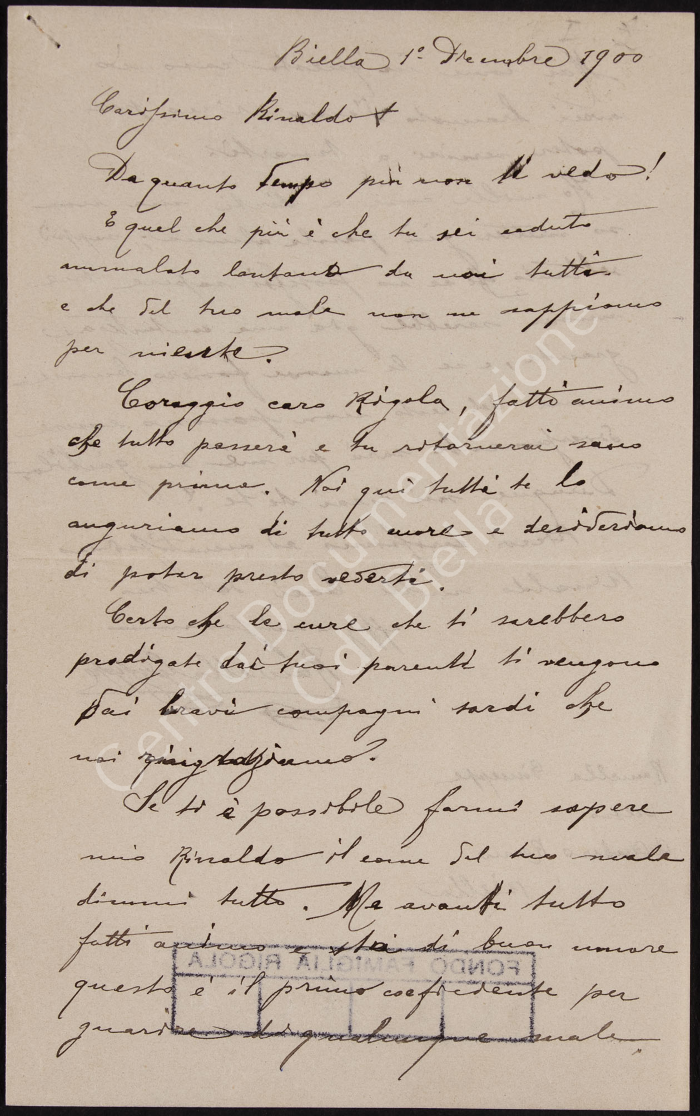 Biella 1º Dicembre 1900
Carissimo Rinaldo
Da quanto tempo più non ti vedo!
E quel che più è che tu sei caduto
ammalato lontano da noi tutti
e che del tuo male non ne sappiamo
per niente.
Coraggio caro Rigola, fatti animo
che tutto passerà e tu ritornerai sano
come prima. Noi qui tutti te lo
auguriamo di tutto cuore e desideriamo
di poter presto vederti.
Certo che le cure che ti sarebbero
prodigate dai tuoi parenti ti vengono
dai bravi compagni sardi che
noi ringraziamo.
Se ti è possibile farmi sapere
mio Rinaldo il come del tuo male
dimmi tutto. Ma avanti tutto
fatti animo e stai di buon umore
questo è il primo coeficiente per
guarire da qualunque male.
FONDO FAMIGLIA RIGOLA
Centro Documentazione
CdL Biella